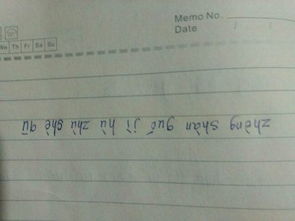 Memo No.
Date
We Th Fr Sa Su
zhāng shàn guó jì hù zhù shè qū